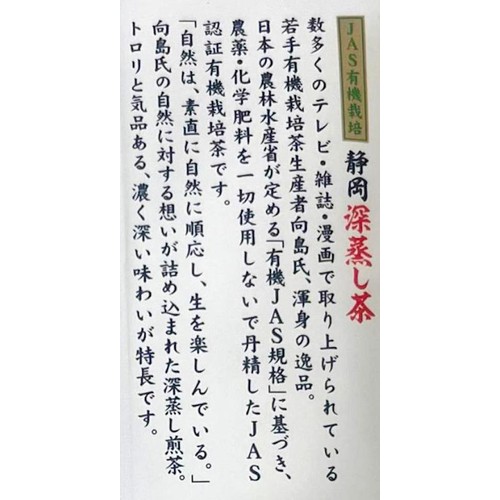 JAS有機栽培
静岡深蒸し茶
数多くのテレビ・雑誌・漫画で取り上げられている
若手有機栽培茶生産者向島氏、渾身の逸品。
日本の農林水産省が定める「有機JAS規格」に基づき、
農薬・化学肥料を一切使用しないで丹精したJAS
認証有機栽培茶です。
「自然は、素直に自然に順応し、生を楽しんでいる。」
向島氏の自然に対する想いが詰め込まれた深蒸し煎茶。
トロリと気品ある、濃く深い味わいが特長です。